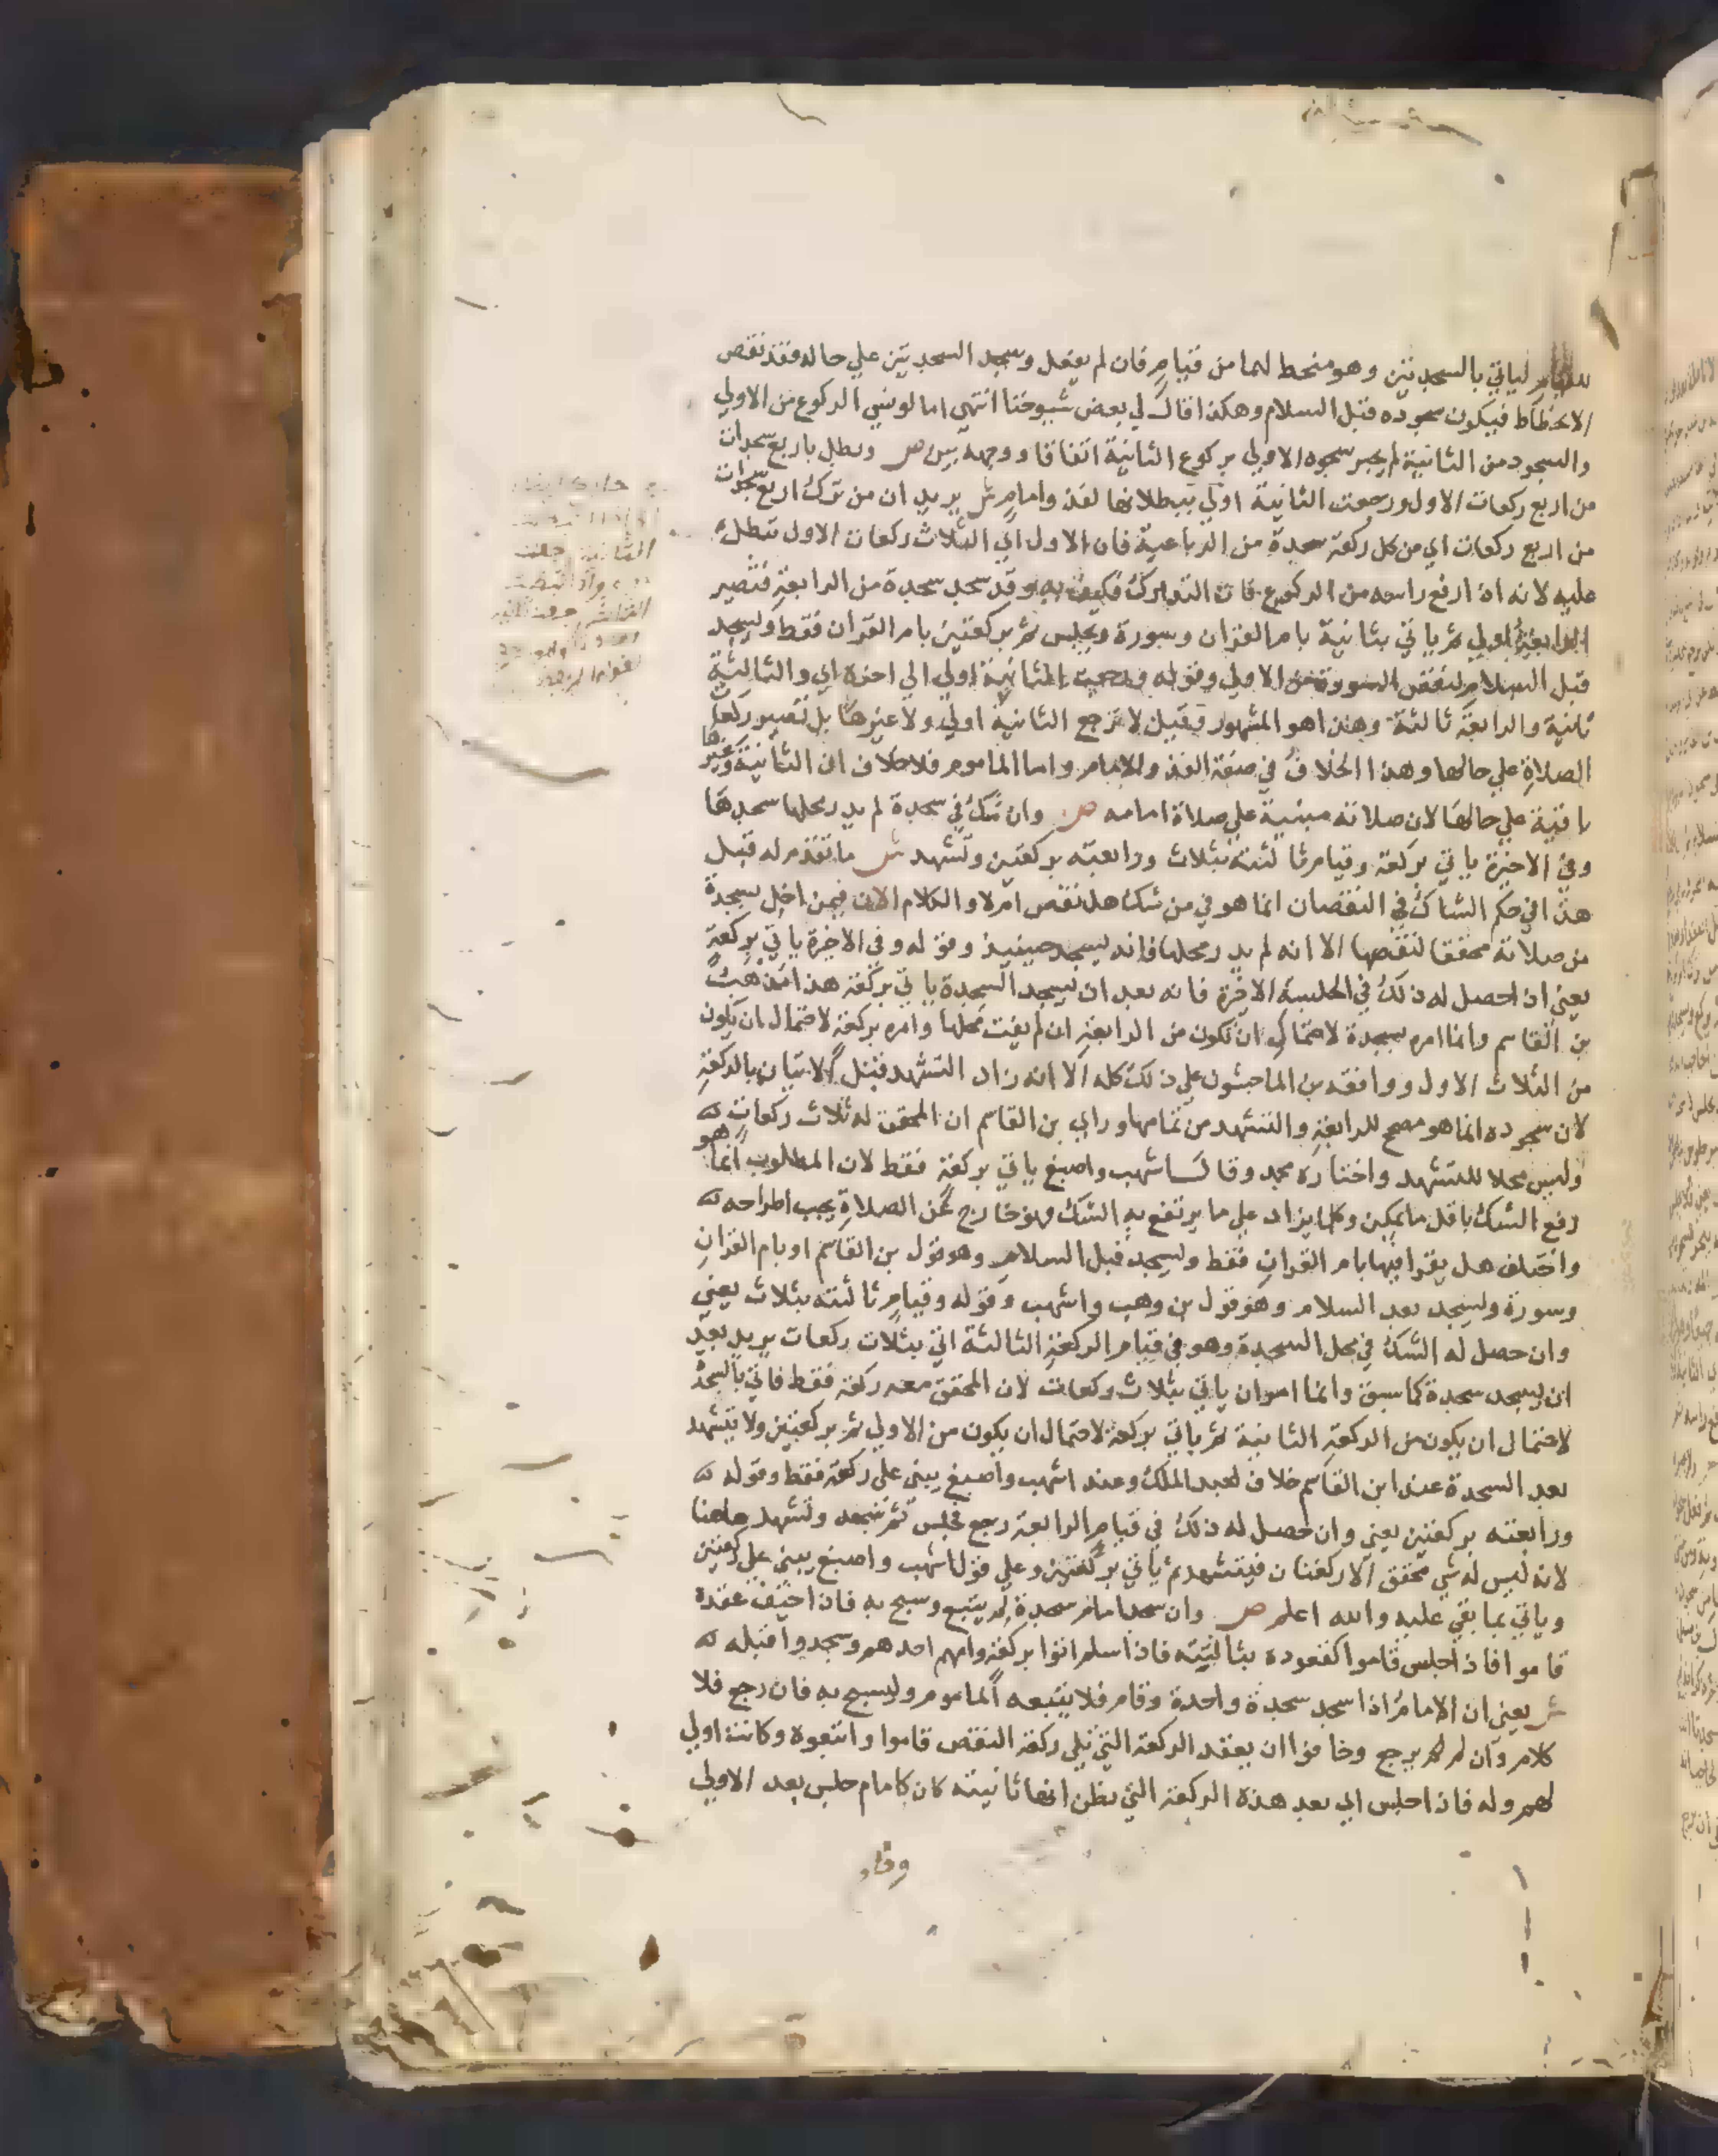 للقيام لياتي بالسجدتين وهو منحط لهما من قيام فان لم يفعل وسجد السجدتين علي حاله فقد نقص
الانحطاط فيكون سجوده قبل السلام وهكذا قال لي بعض شيوخنا انتهى اما لو نسي الركوع من الاولي
والسجود من الثانية لم يجبر سجوه الاولي بركوع الثانية اتفاقا ووجهه بين ص وبطل باربع سجدات
من اربع ركعات الاول ورجعت الثانية اولي ببطلانها لفذ وامام ش يريد ان من ترك اربع سجدات
من اربع ركعات اي من كل ركعة سجدة من الرباعية فان الاول اي الثلاث ركعات الاول تبطل
عليه لانه اذا رفع راسه من الركوع فات التدارك فكيف به وقد سجد سجدة من الرابعة فتصير
الرابعة اولي ثم ياتي بثانية بام القران وسورة ويجلس ثم بركعتين بام القران فقط ويسجد
قبل السلام لنقص السورة من الاولي وقوله ورجعت الثانية اولي الي اخره اي والثالثة
ثانية والرابعة ثالثة وهذا هو المشهور وقيل لا ترجع الثانية اولي ولا غيرها بل تصير ركعات
الصلاة علي حالها وهذا الخلاف في صفة الفذ والامام واما الماموم فلا خلاف ان الثانية وغيرها
باقية علي حالها لان صلاته مبنية علي صلاة امامه ص وان شك في سجدة لم يدر محلها سجدها
وفي الاخيرة ياتي بركعة وقيام ثالثته بثلاث ورابعته بركعتين وتشهد ش ما تقدم له قبل
هذا في حكم الشاك في النقصان انما هو في من شك هل نقص ام لا والكلام الان فيمن اخل بسجدة
من صلاته محققا لنقصها الا انه لم يدر محلها فانه يسجد حينيذ وقوله وفي الاخيرة ياتي بركعة
يعني اذا حصل له ذلك في الجلسة الاخيرة فانه بعد ان يسجد السجدة ياتي بركعة هذا مذهب
بن القاسم وانما امره بسجدة لاحتمال ان تكون من الرابعة ان لم يفت محلها وامره بركعة لاحتمال ان يكون
من الثلاث الاول ووافقه بن الماجشون علي ذلك كله الا انه زاد التشهد قبل الاتيان بالركعة
لان سجوده انما هو مصحح للرابعة والتشهد من تمامها وراي بن القاسم ان المحقق له ثلاث ركعات
وليس محلا للتشهد واختاره محمد وقال اشهب واصبغ ياتي بركعة فقط لان المطلوب انما هو
رفع الشك باقل ما يمكن وكلما يزاد علي ما يرتفع به الشك فهو خارج عن الصلاة يجب اطراحه
واختلف هل يقرا فيها بام القران فقط ويسجد قبل السلام وهو قول بن القاسم او بام القران
وسورة ويسجد بعد السلام وهو قول بن وهب واشهب وقوله وقيام ثالثته بثلاث يعني
وان حصل له الشك في محل السجدة وهو في قيام الركعة الثالثة اتي بثلاث ركعات يريد بعد
ان يسجد سجدة كما سبق وانما امر ان ياتي بثلاث ركعات لان المحقق معه ركعة فقط فاتي بالسجدة
لاحتمال ان يكون من الركعة الثانية ثم ياتي بركعة لاحتمال ان يكون من الاولي ثم بركعتين ولا يتشهد
بعد السجدة عند ابن القاسم خلافا لعبد الملك وعند اشهب واصبغ يبني علي ركعة فقط وقوله
ورابعته بركعتين يعني وان حصل له ذلك في قيام الرابعة رجع فجلس ثم سجد وتشهد هاهنا
لانه ليس له شي محقق الا ركعتان فيتشهد ثم ياتي بركعتين وعلي قول اشهب واصبغ يبني علي ركعتين
وياتي بما بقي عليه والله اعلم ص وان سجد امام سجدة لم يتبع وسبح به فاذا خيف عقده
قاموا فاذا جلس قاموا كقعوده بثالثته فاذا سلم اتوا بركعة وامهم احدهم وسجدوا قبله
ش يعني ان الامام اذا سجد سجدة واحدة وقام فلا يتبعه الماموم وليسبح به فان رجع فلا
كلام وان لم يرجع وخافوا ان يعقد الركعة التي تلي ركعة النقص قاموا واتبعوه وكانت اولي
لهم وله فاذا جلس اي بعد هذه الركعة التي يظن انها ثانيته كان كامام جلس بعد الاولي